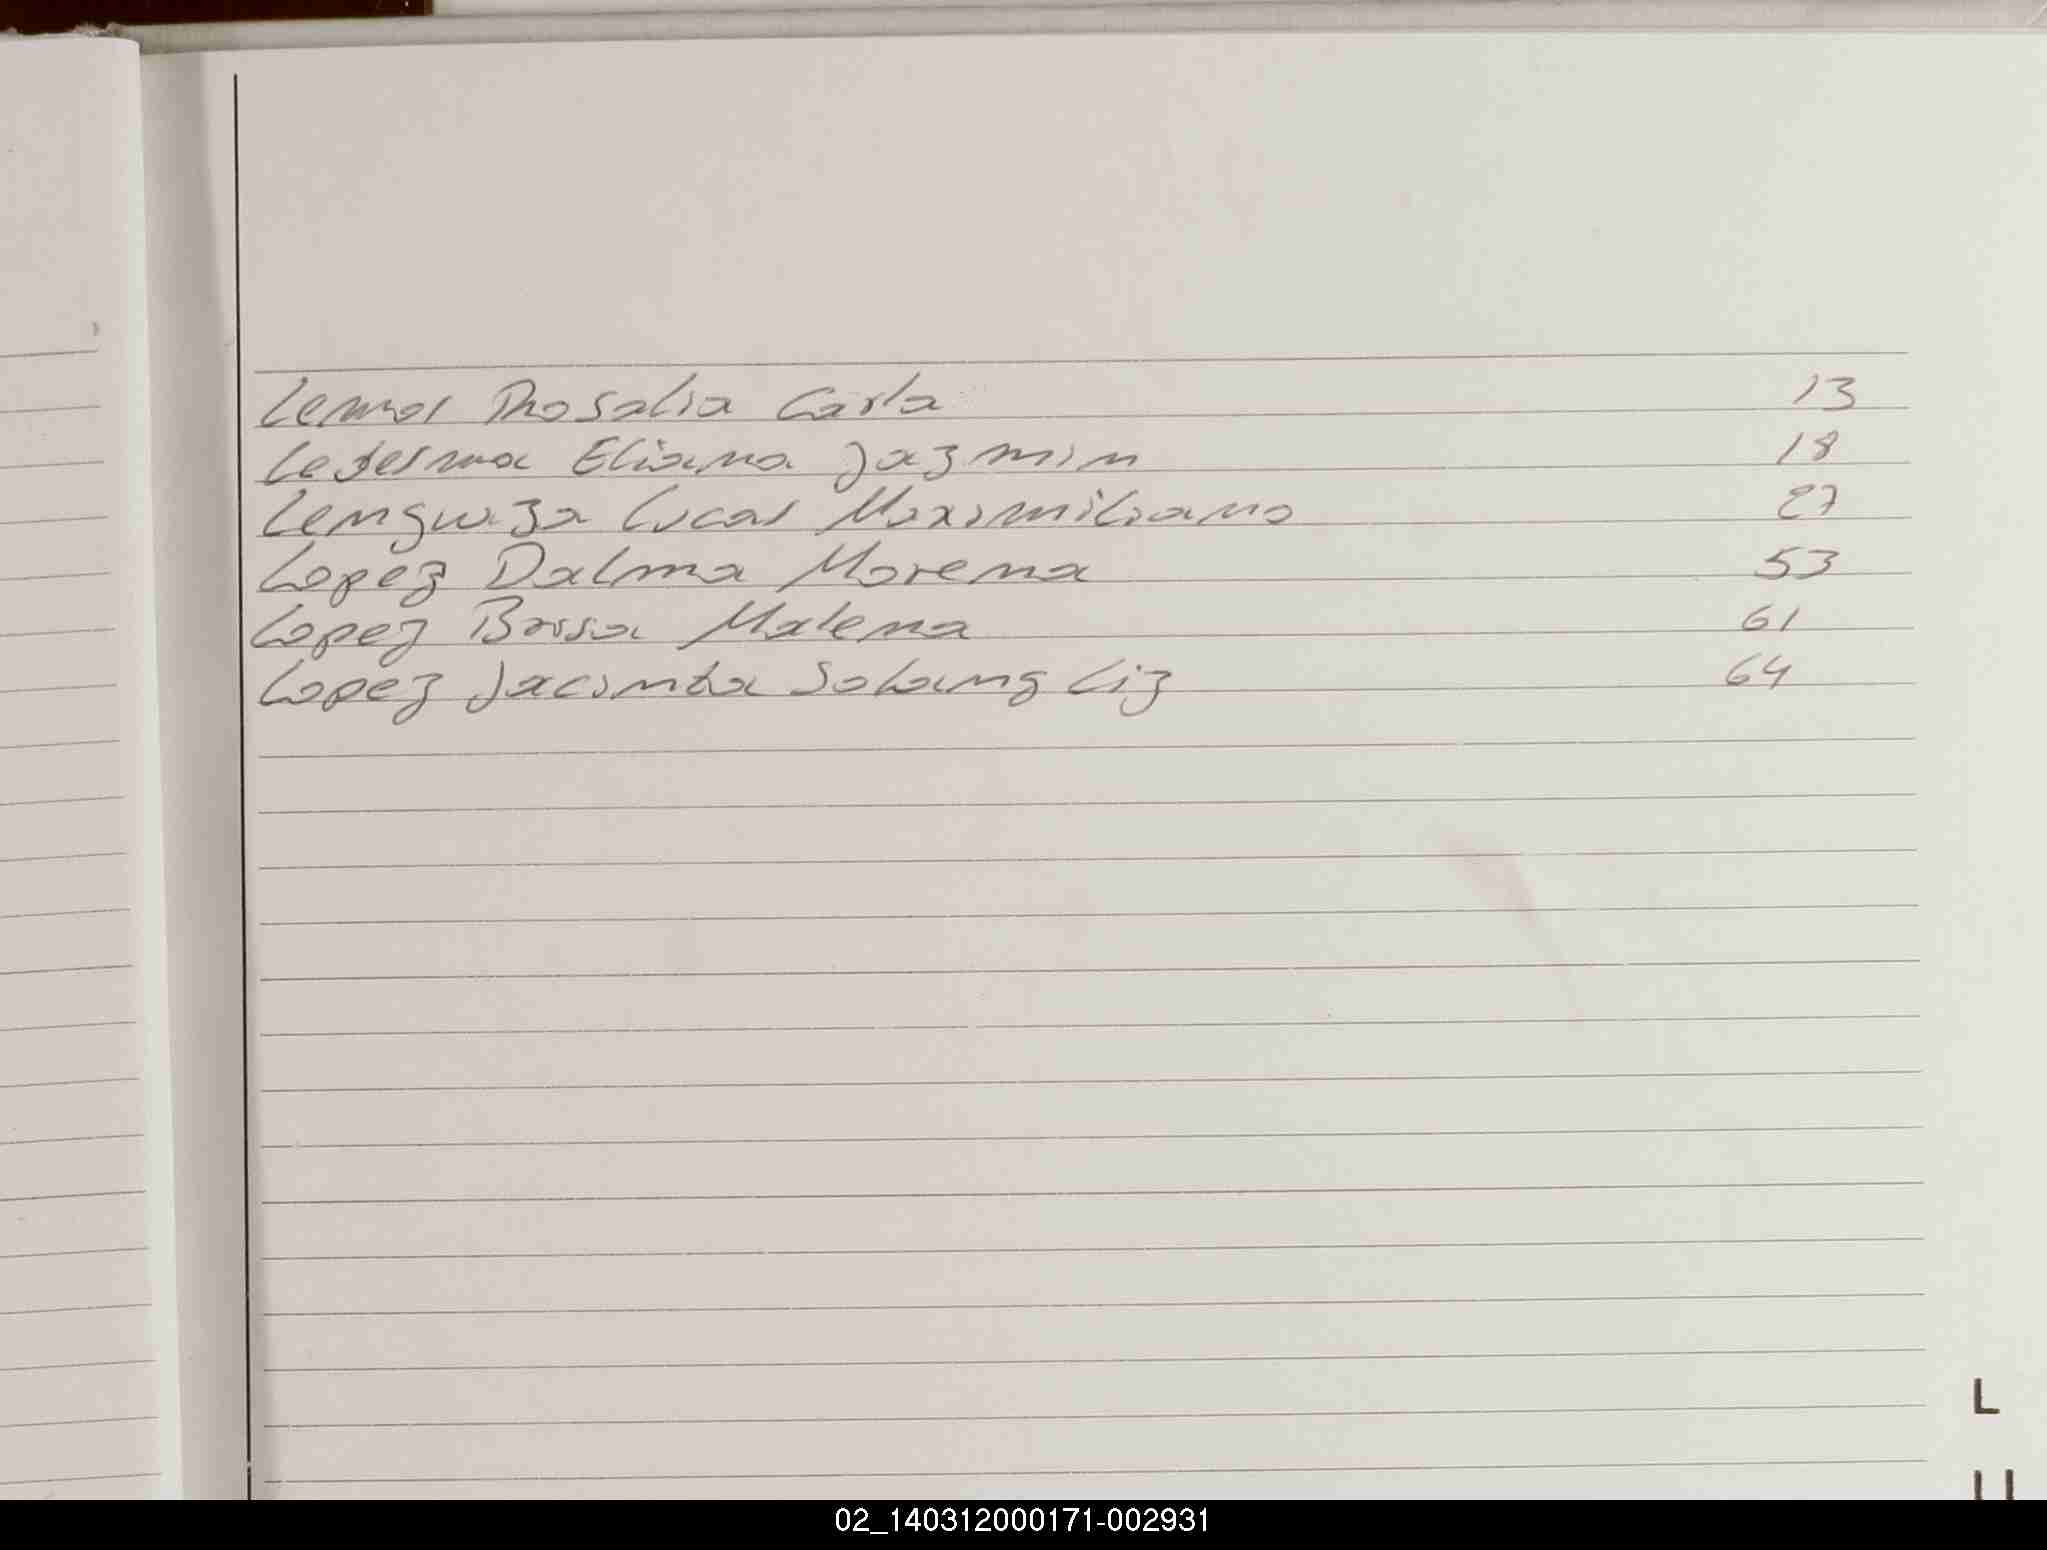 Lemos Rosalia Carla 13
Ledesma Eliana Jazmin 18
Lenguaza Lucas Maximiliano 27
Lopez Dalma Morena 53
Lopez Malena 61
Lopez Jacinta Solang Liz 64
L
02_140312000171-002931